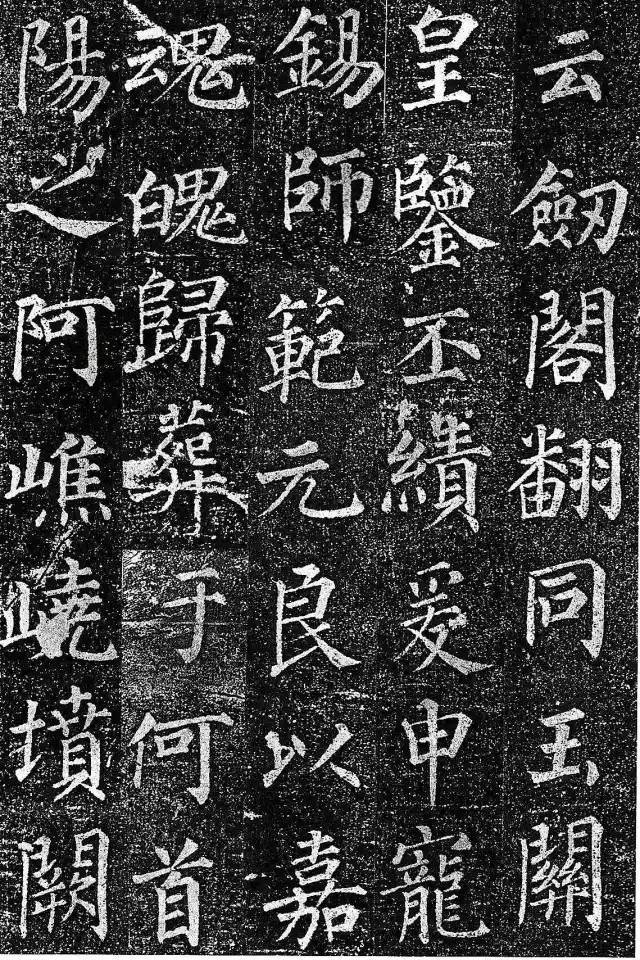 云劒閣翻同玉關
皇鑒丕績爰申寵
錫師範元良以嘉
魂魄歸葬于何首
陽之阿嶕嶢墳闕